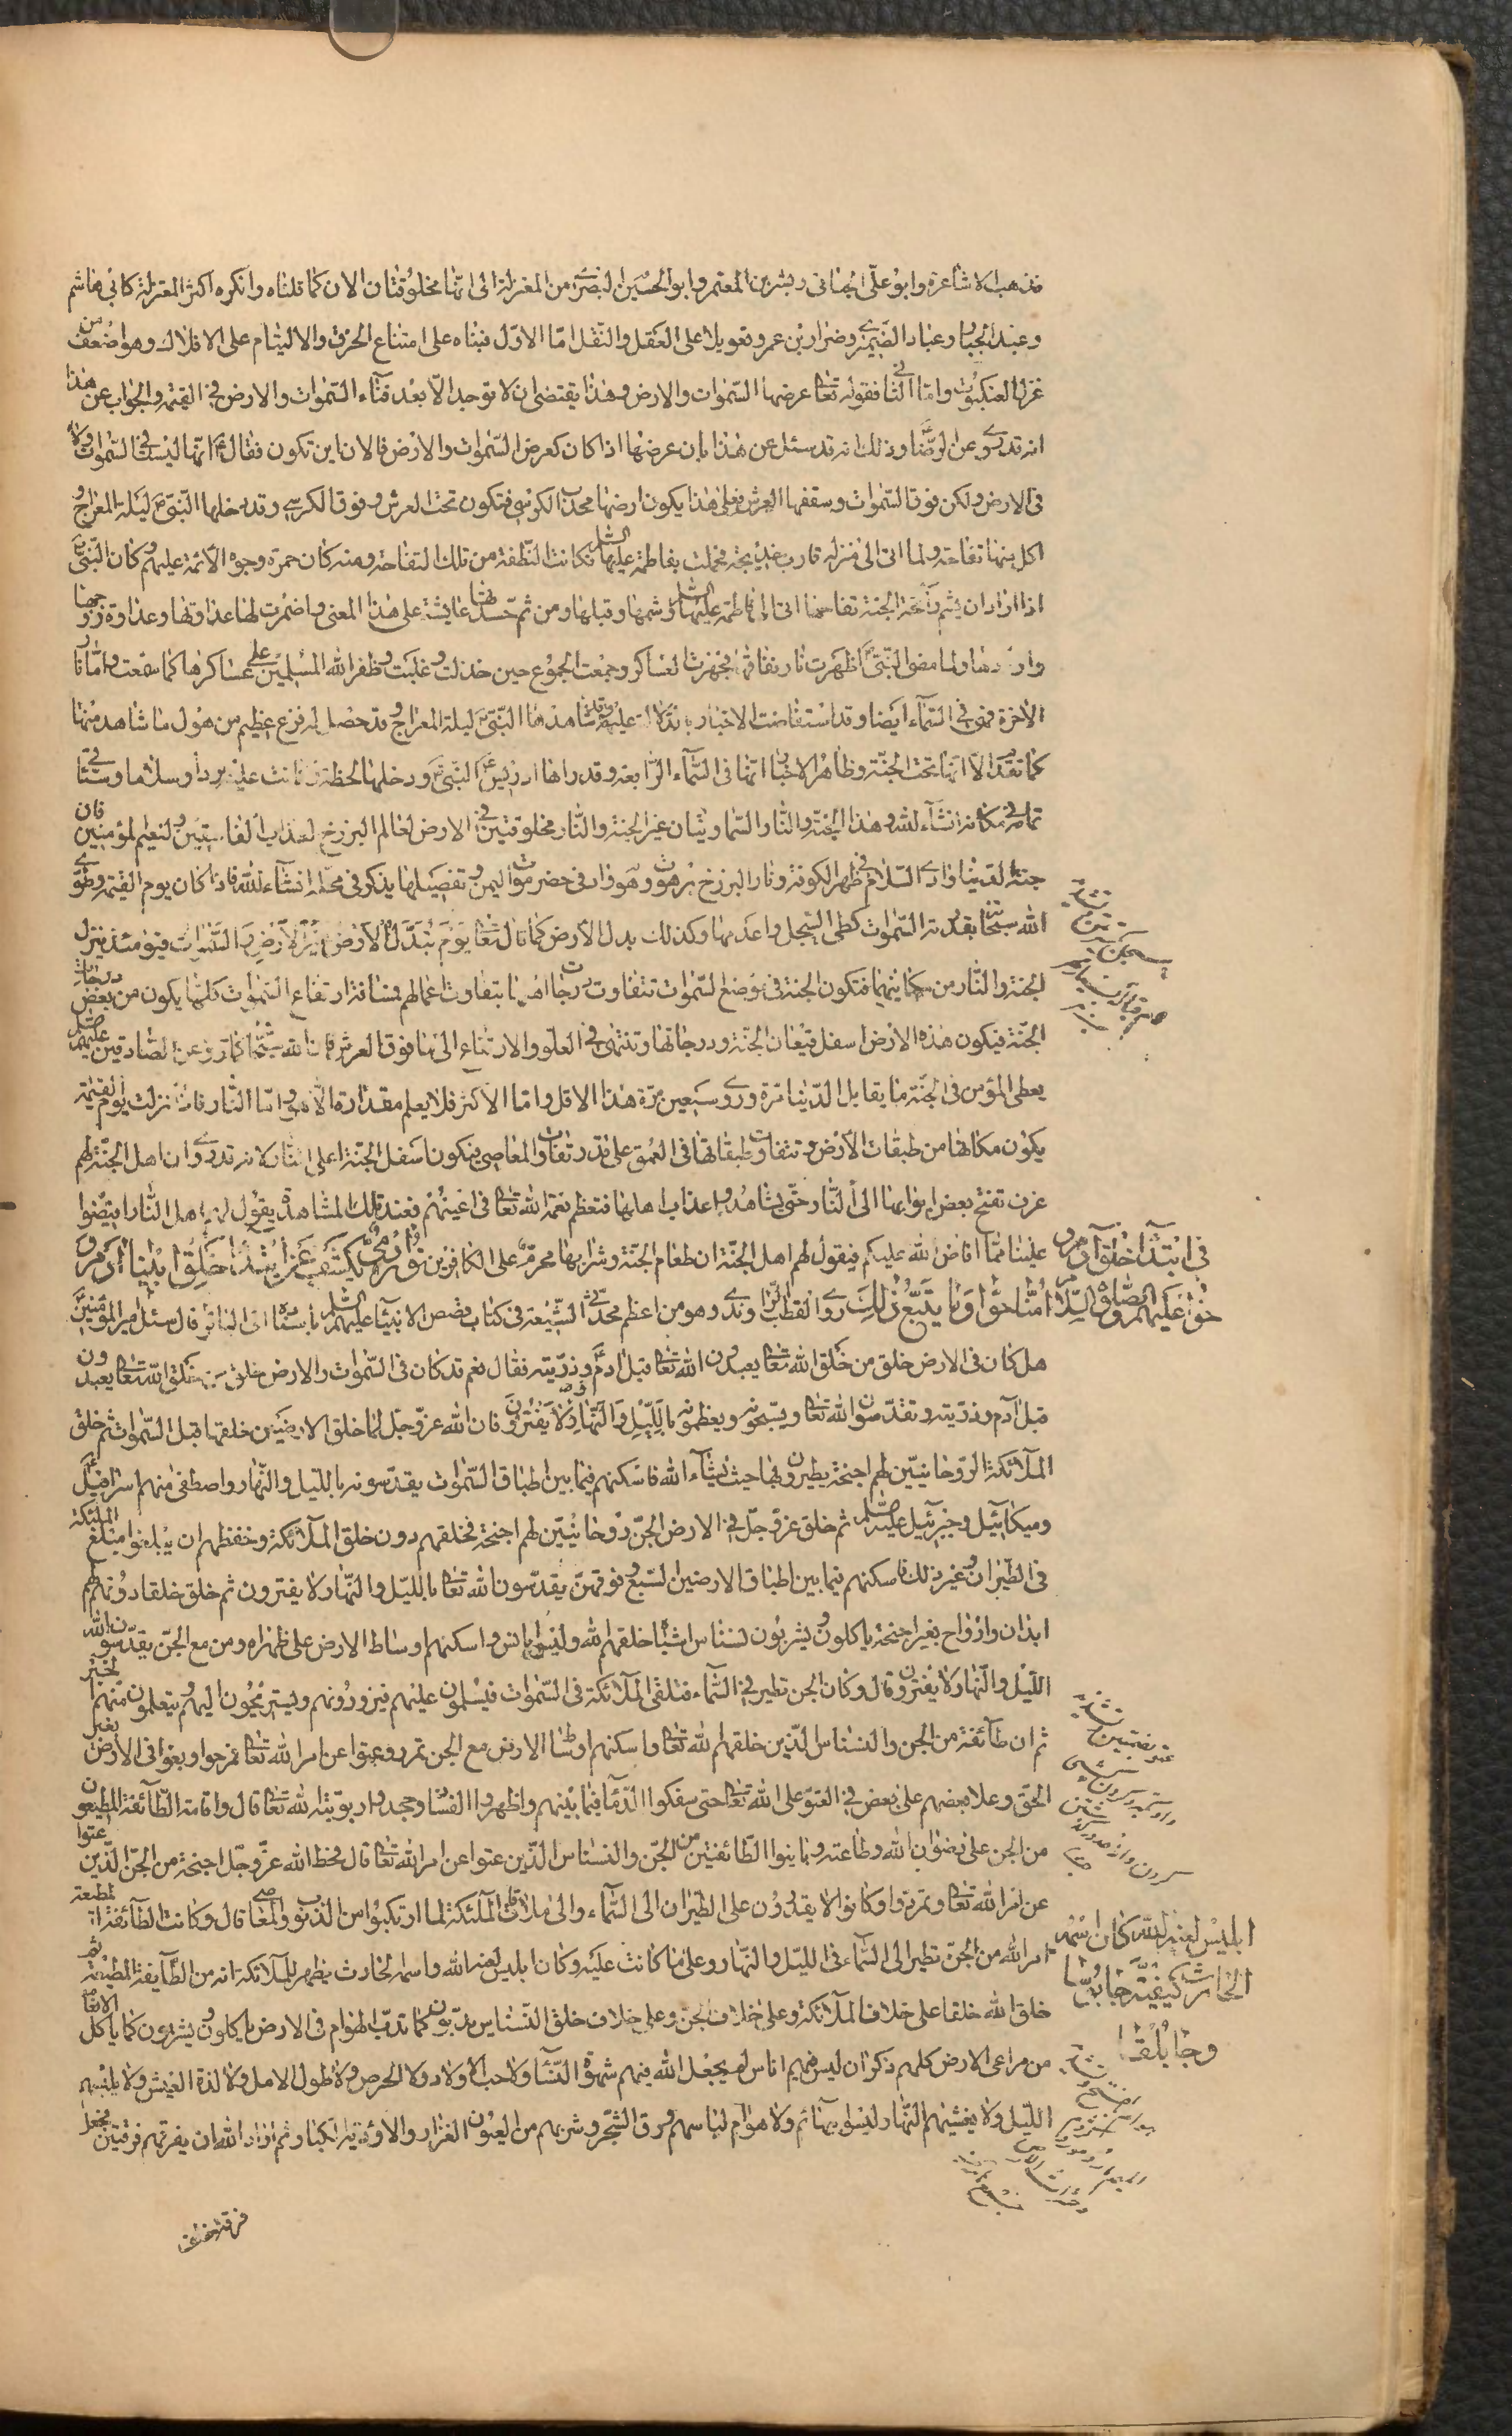 فذهب الاشاعرة وابو علي الجبائي وبشر بن المعتمر وابو الحسين البصري من المعتزلة الى انها مخلوقتان الان كما قلناه وانكره اكثر المعتزلة كابي هاشم
وعبد الجبار وعباد الضيمري وضرار بن عمرو تعويلا على العقل والنقل اما الاول فبناه على امتناع الخرق والالتيام على الافلاك وهو اضعف من
غزل العنكبوت واما الثاني فقوله تعا عرضها السموات والارض وهذا يقتضى ان لا توجد الا بعد فناء السموات والارض في القيمة والجواب عن هذا
انه قد روى عن الرضا وذلك انه قد سئل عن هذا بان عرضها اذا كان كعرض السموات والارض فالان اين تكون فقال انها ليست في السموات ولا
فى الارض ولكن فوق السموات وسقفها العرش فعلى هذا يكون ارضها محدب الكرسى فتكون تحت العرش وفوق الكرسي وقد دخلها النبى ليلة المعراج و
اكل منها تفاحة ولما اتى الى منزله قارب خديجة فحملت بفاطمة عليها السلم فكانت النطفة من تلك التفاحة ومنه كان حمرة وجوه الائمة عليهم وكان النبى
اذا اراد ان يشم رائحة الجنة تفاحها اتى الى فاطمة عليها السلم وشمها وقبلها ومن ثم حسدتها عايشة على هذا المعنى واضمرت لها عداوتها وعداوة زوجها
واولادها ولما مضى النبى اظهرت نار نفاقها فجهزت العساكر وجمعت الجموع حين خذلت وغلبت وظفر الله المسلمين على عساكرها كما سمعت واما نار
الاخرة فهى فى السماء ايضا وقد استفاضت الاخبار بالدلالة عليه وقد شاهدها النبى ليلة المعراج وقد حصل له فزع عظيم من هول ما شاهد منها
كما تقدم الا انها تحت الجنة وظاهر الاخبار انها فى السماء الرابعة وقد راها ادريس النبى ودخلها لحظة فكانت عليه بردا وسلاما وسياتى
تمامه فى مكانه انشاء الله وهذا الجنة والنار السماويتان غير الجنة والنار مخلوقتين فى الارض لعالم البرزخ لعذاب الفاسقين ولنعيم المؤمنين فان
جنة الدنيا وادي السلام فى ظهر الكوفة ونار البرزخ برهوت وهو واد فى حضرموت اليمن وتفصيلها يذكر فى محله انشاء الله فاذا كان يوم القيمة وطوى
الله سبحانه بقدرته السموات كطى السجل واعدمها وكذلك بدل الارض كما قال تعا يوم تبدل الارض غير الارض والسموات فيومئذ ينزل
الجنة والنار من مكانيهما فتكون الجنة فى موضع السموات تتفاوت درجات اهلها بتفاوت اعمالهم فمسافة ارتفاع السموات كلها يكون من بعض درجات
الجنة فيكون هذه الارض اسفل قيعان الجنة ودرجاتها وتنتهى في العلو والارتفاع الى ما فوق العرش فان الله سبحانه كما روى عن الصادقين عليهم السلم
يعطى المؤمن فى الجنة ما يقابل الدنيا مرة وروى سبعين مرة هذا الاقل واما الاكثر فلا يعلم مقداره الا هو واما النار فاذا نزلت يوم القيمة
يكون مكانها من طبقات الارض وتتفاوت طبقاتها فى العمق على قدر تفاوت المعاصي فيكون اسفل الجنة اعلى النار لانه قد روى ان اهل الجنة لهم
غرف تفتح بعض ابوابها الى النار حتى يشاهدوا عذاب اهلها فتعظم نعمة الله تعا فى اعينهم فعند تلك المشاهدة يقول لهم اهل النار افيضوا
علينا مما افاض الله عليكم فيقول لهم اهل الجنة ان طعام الجنة وشرابها محرم على الكافرين نور مجمل يكشف عن ابتداء خلق ابينا ادم و
فى ابتداء خلق آدم و حوا عليهم الصلوة والسلام امنا حوا وما يتبع ذلك روى القطب الراوندى وهو من اعظم محدثى الشيعة فى كتاب قصص الانبياء عليهم السلم باسناده الى الباقر قال سئل امير المؤمنين
هل كان فى الارض خلق من خلق الله تعا يعبدون الله تعا قبل ادم وذريته فقال نعم قد كان فى السموات والارض خلق من خلق الله تعا يعبدون
قبل آدم وذريته وتقدسون الله تعا ويسبحونه ويعظمونه بالليل والنهار ولا يفترون فان الله عز وجل لما خلق الارضين خلقها قبل السموات ثم خلق
الملائكة الروحانيين لهم اجنحة يطيرون بها حيث يشاء الله فاسكنهم فيما بين اطباق السموات يقدسونه بالليل والنهار واصطفى منهم اسرافيل
وميكائيل وجبرئيل عليهم السلم ثم خلق عز وجل في الارض الجن روحانيين لهم اجنحة فخلقهم دون خلق الملائكة وخفظهم ان يبلغوا مبلغ الملئكة
فى الطيران وغير ذلك فاسكنهم فيما بين اطباق الارضين السبع وفوقهن يقدسون الله تعا بالليل والنهار ولا يفترون ثم خلق خلقا دونهم لهم
ابدان وارواح بغير اجنحة ياكلون ويشربون نسناس اشباه خلقهم الله وليسوا بانس واسكنهم اوساط الارض على ظهر الارض ومن مع الجن يقدسون الله
الليل والنهار لا يفترون وقال وكان الجن تطير في السماء فتلقى الملائكة فى السموات فيسلمون عليهم فيزورونهم ويستريحون اليهم ويتعلمون منهم الخير
ثم ان طائفة من الجن والنسناس الذين خلقهم الله تعا واسكنهم اوساط الارض مع الجن تمردوا وعتوا عن امر الله تعا فمرحوا وبغوا فى الارض بغير
الحق وعلا بعضهم على بعض في العتو على الله تعا حتى سفكوا الدماء فيما بينهم واظهروا الفساد وجحدوا ربوبية الله تعا قال واقامت الطائفة المطيعون
من الجن على رضوان الله وطاعته وباينوا الطائفتين من الجن والنسناس الذين عتوا عن امر الله تعا قال فحط الله عز وجل اجنحة من الجن الذين عتوا
عن امر الله تعا وتمردوا وكانوا لا يقدرون على الطيران الى السماء والى ملاقات الملئكة لما ارتكبوا من الذنوب والمعاصى قال وكانت الطائفة المطيعة
امر الله من الجن تطير الى السماء فى الليل والنهار وعلى ما كانت عليه وكان ابليس لعنه الله واسمه الحارث يظهر للملائكة انه من الطايفة المطيعة ثم
ابليس لعنه الله كان اسمه الحارث كيفية جابرسا وجابلقا
خلق الله خلقا على خلاف الملائكة وعلى خلاف الجن وعلى خلاف خلق النسناس يدبون كما تدب الهوام فى الارض ياكلون ويشربون كما ياكل الانعام
من مراعى الارض كلهم ذكران ليس فيهم اناث لم يجعل الله فيهم شهوة النساء ولا حب الاولاد ولا الحرص ولا طول الامل ولا لذة العيش ولا يلبسهم
الليل ولا يغشيهم النهار ليسوا ببهائم ولا هوام لباسهم ورق الشجر وشربهم من العيون الغزار والاودية الكبار ثم اراد الله ان يفرقهم فرقتين فجعل
فرقة خلف